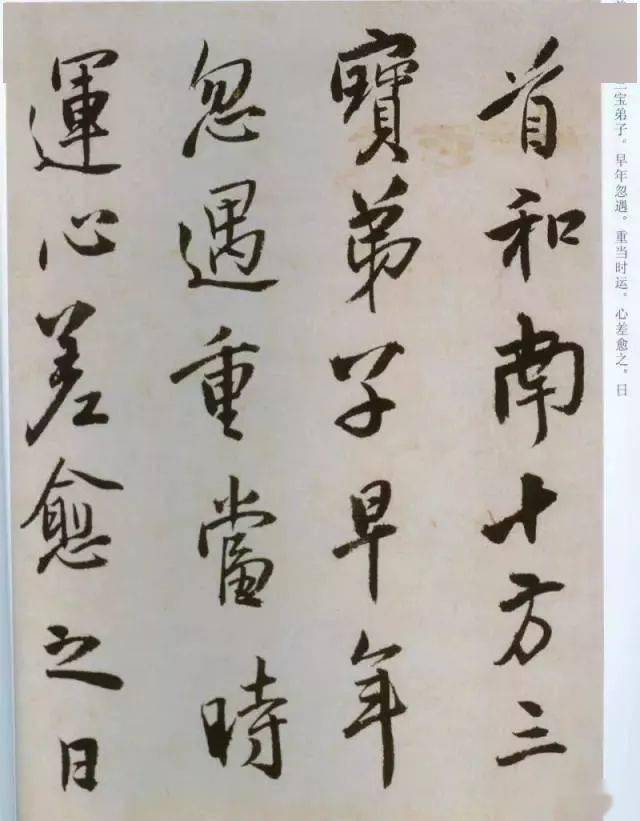 首和南十方三
寶弟子早年
忽遇重當時
運心差愈之日
三宝弟子。早年忽遇。重当时运。心差愈之。日